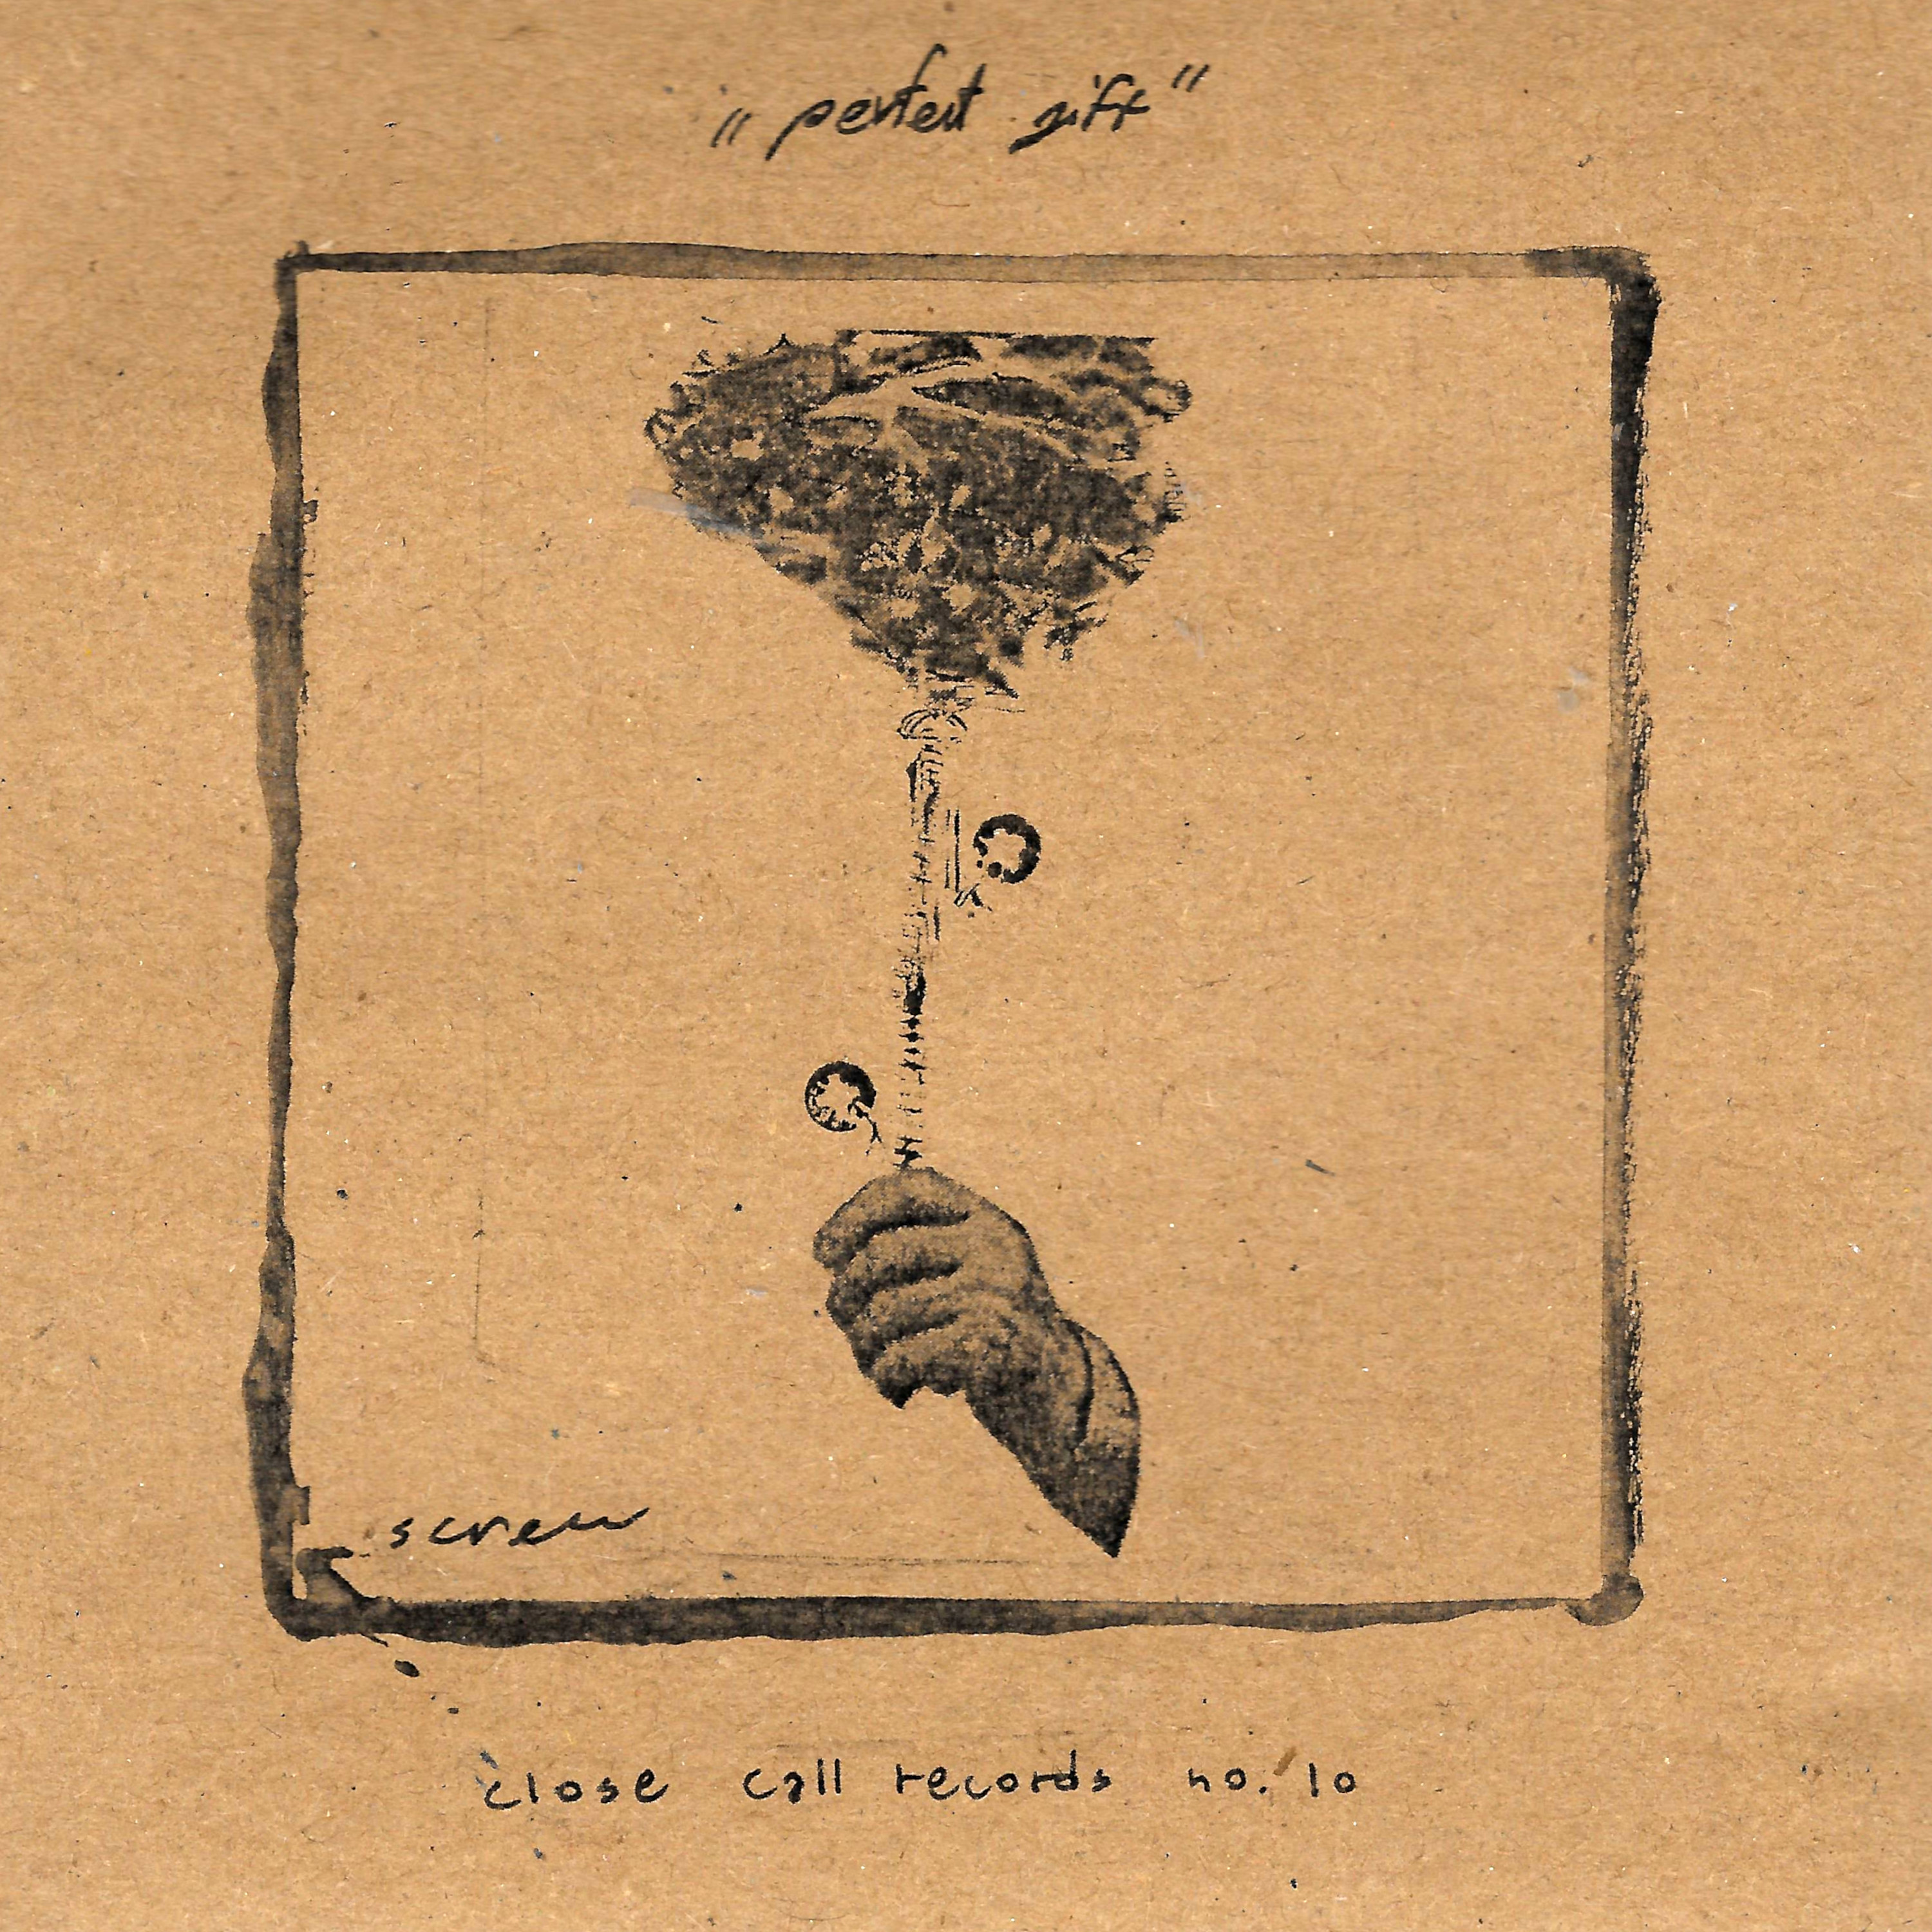 „perfect gift"
screw
close call records no. 10